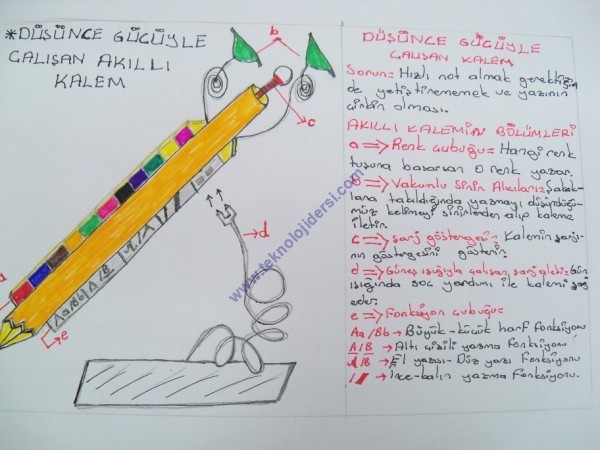 *DÜŞÜNCE GÜCÜYLE
ÇALIŞAN AKILLI
KALEM
b
c
d
a
e
Aa/Bb
A/B
www.teknolojidersi.com
DÜŞÜNCE GÜCÜYLE
ÇALIŞAN KALEM
Sorun= Hızlı not almak gerektiğin
de yetiştirememek ve yazının
çirkin olması.
AKILLI KALEMİN BÖLÜMLERİ
a => Renk çubuğu= Hangi renk
tuşuna basarsan o renk yazar.
b => Vakumlu Sinir Alıcıları= Şakak-
lara takıldığında yazmayı düşündüğü-
müz kelimeyi sinirlerden alıp kaleme
iletir.
c => Şarj göstergesi= Kalemin şarjı-
nın göstergesini gösterir.
d => Güneş ışığıyla çalışan şarj aleti= Gün
ışığında şarj yardımı ile kalemi şarj
eder.
e => Fonksiyon çubuğu=
Aa/Bb → Büyük-küçük harf fonksiyonu
A/B → Altı çizili yazma fonksiyonu
A/B → El yazısı-Düz yazı fonksiyonu
→ İnce-kalın yazma fonksiyonu.